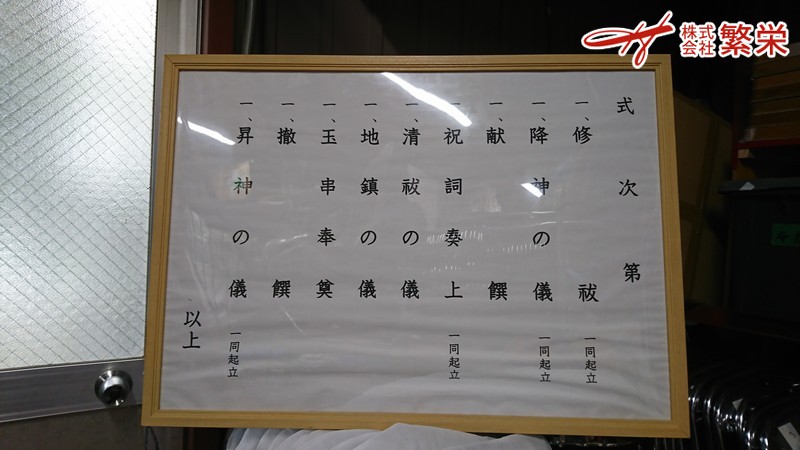 式次第
一、修祓 一同起立
一、降神の儀 一同起立
一、献饌
一、祝詞奏上 一同起立
一、清祓の儀
一、地鎮の儀
一、玉串奉奠
一、撤饌
一、昇神の儀 一同起立
以上
株式会社 繁栄